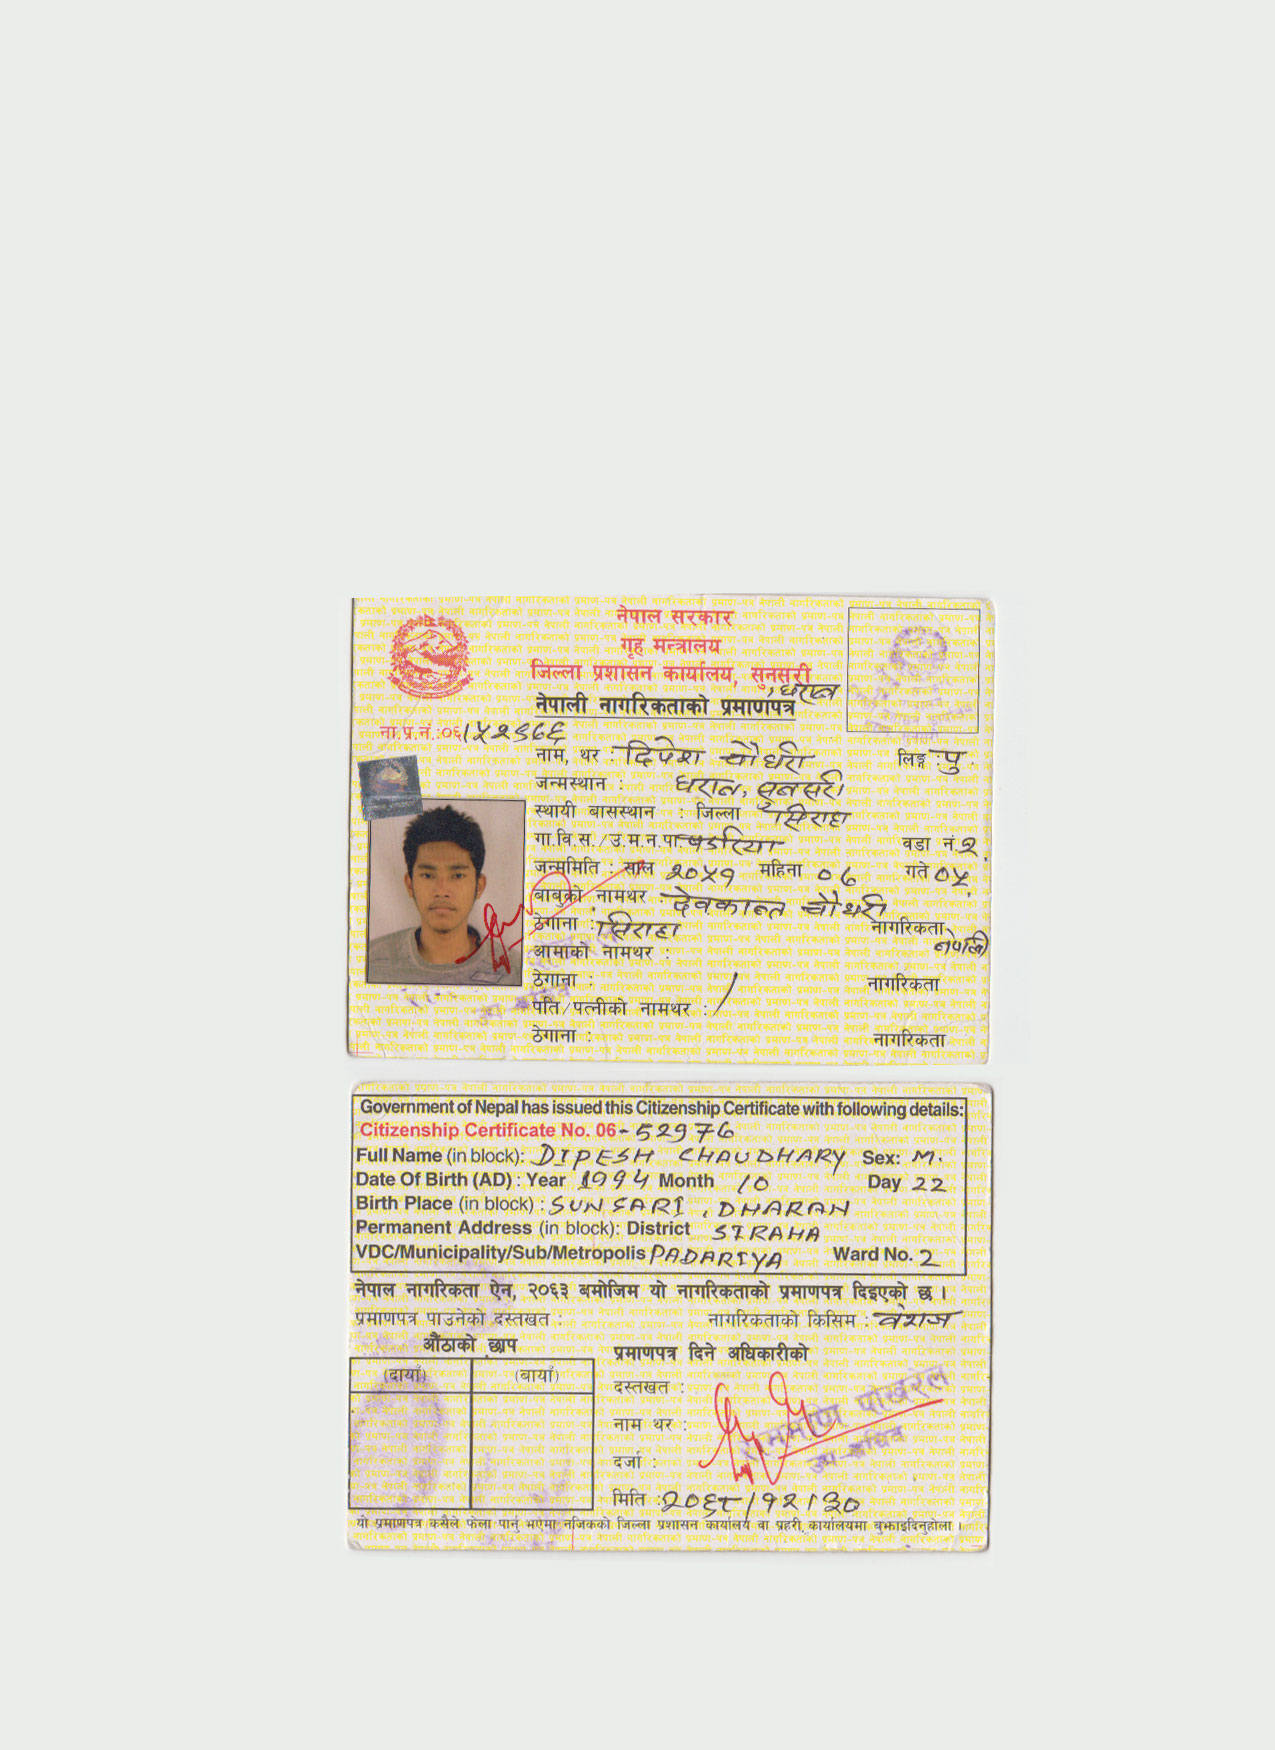 नेपाल सरकार
गृह मन्त्रालय
जिल्ला प्रशासन कार्यालय, सुनसरी
, धरान
नेपाली नागरिकताको प्रमाणपत्र
ना.प्र.नं.:०६/५२९७६
नाम, थर : दिपेश चौधरी लिङ्ग : पु.
जन्मस्थान : धरान, सुनसरी
स्थायी बासस्थान : जिल्ला सिराहा
गा.वि.स./उ.म.न.पा. पडरिया वडा नं. २.
जन्ममिति : साल २०५१ महिना ०७ गते ०५.
बाबुको नामथर : देवकान्त चौधरी
ठेगाना : सिराहा नागरिकता नेपाली
आमाको नामथर :
ठेगाना : नागरिकता
पति/पत्नीको नामथर : /
ठेगाना : नागरिकता
Government of Nepal has issued this Citizenship Certificate with following details:
Citizenship Certificate No. 06-52976
Full Name (in block): DIPESH CHAUDHARY Sex: M.
Date Of Birth (AD) : Year 1994 Month 10 Day 22
Birth Place (in block) : SUNSARI, DHARAN
Permanent Address (in block): District SIRAHA
VDC/Municipality/Sub/Metropolis PADARIYA Ward No. 2
नेपाल नागरिकता ऐन, २०६३ बमोजिम यो नागरिकताको प्रमाणपत्र दिइएको छ ।
प्रमाणपत्र पाउनेको दस्तखत : नागरिकताको किसिम : वंशज
औंठाको छाप प्रमाणपत्र दिने अधिकारीको
(दायाँ) (बायाँ)
दस्तखत :
नाम थर : पोखरेल
दर्जा : उप-सचिव
मिति : २०६८/१२/३०
यो प्रमाणपत्र कसैले फेला पार्नु भएमा नजिकको जिल्ला प्रशासन कार्यालय वा प्रहरी कार्यालयमा बुझाइदिनुहोला ।